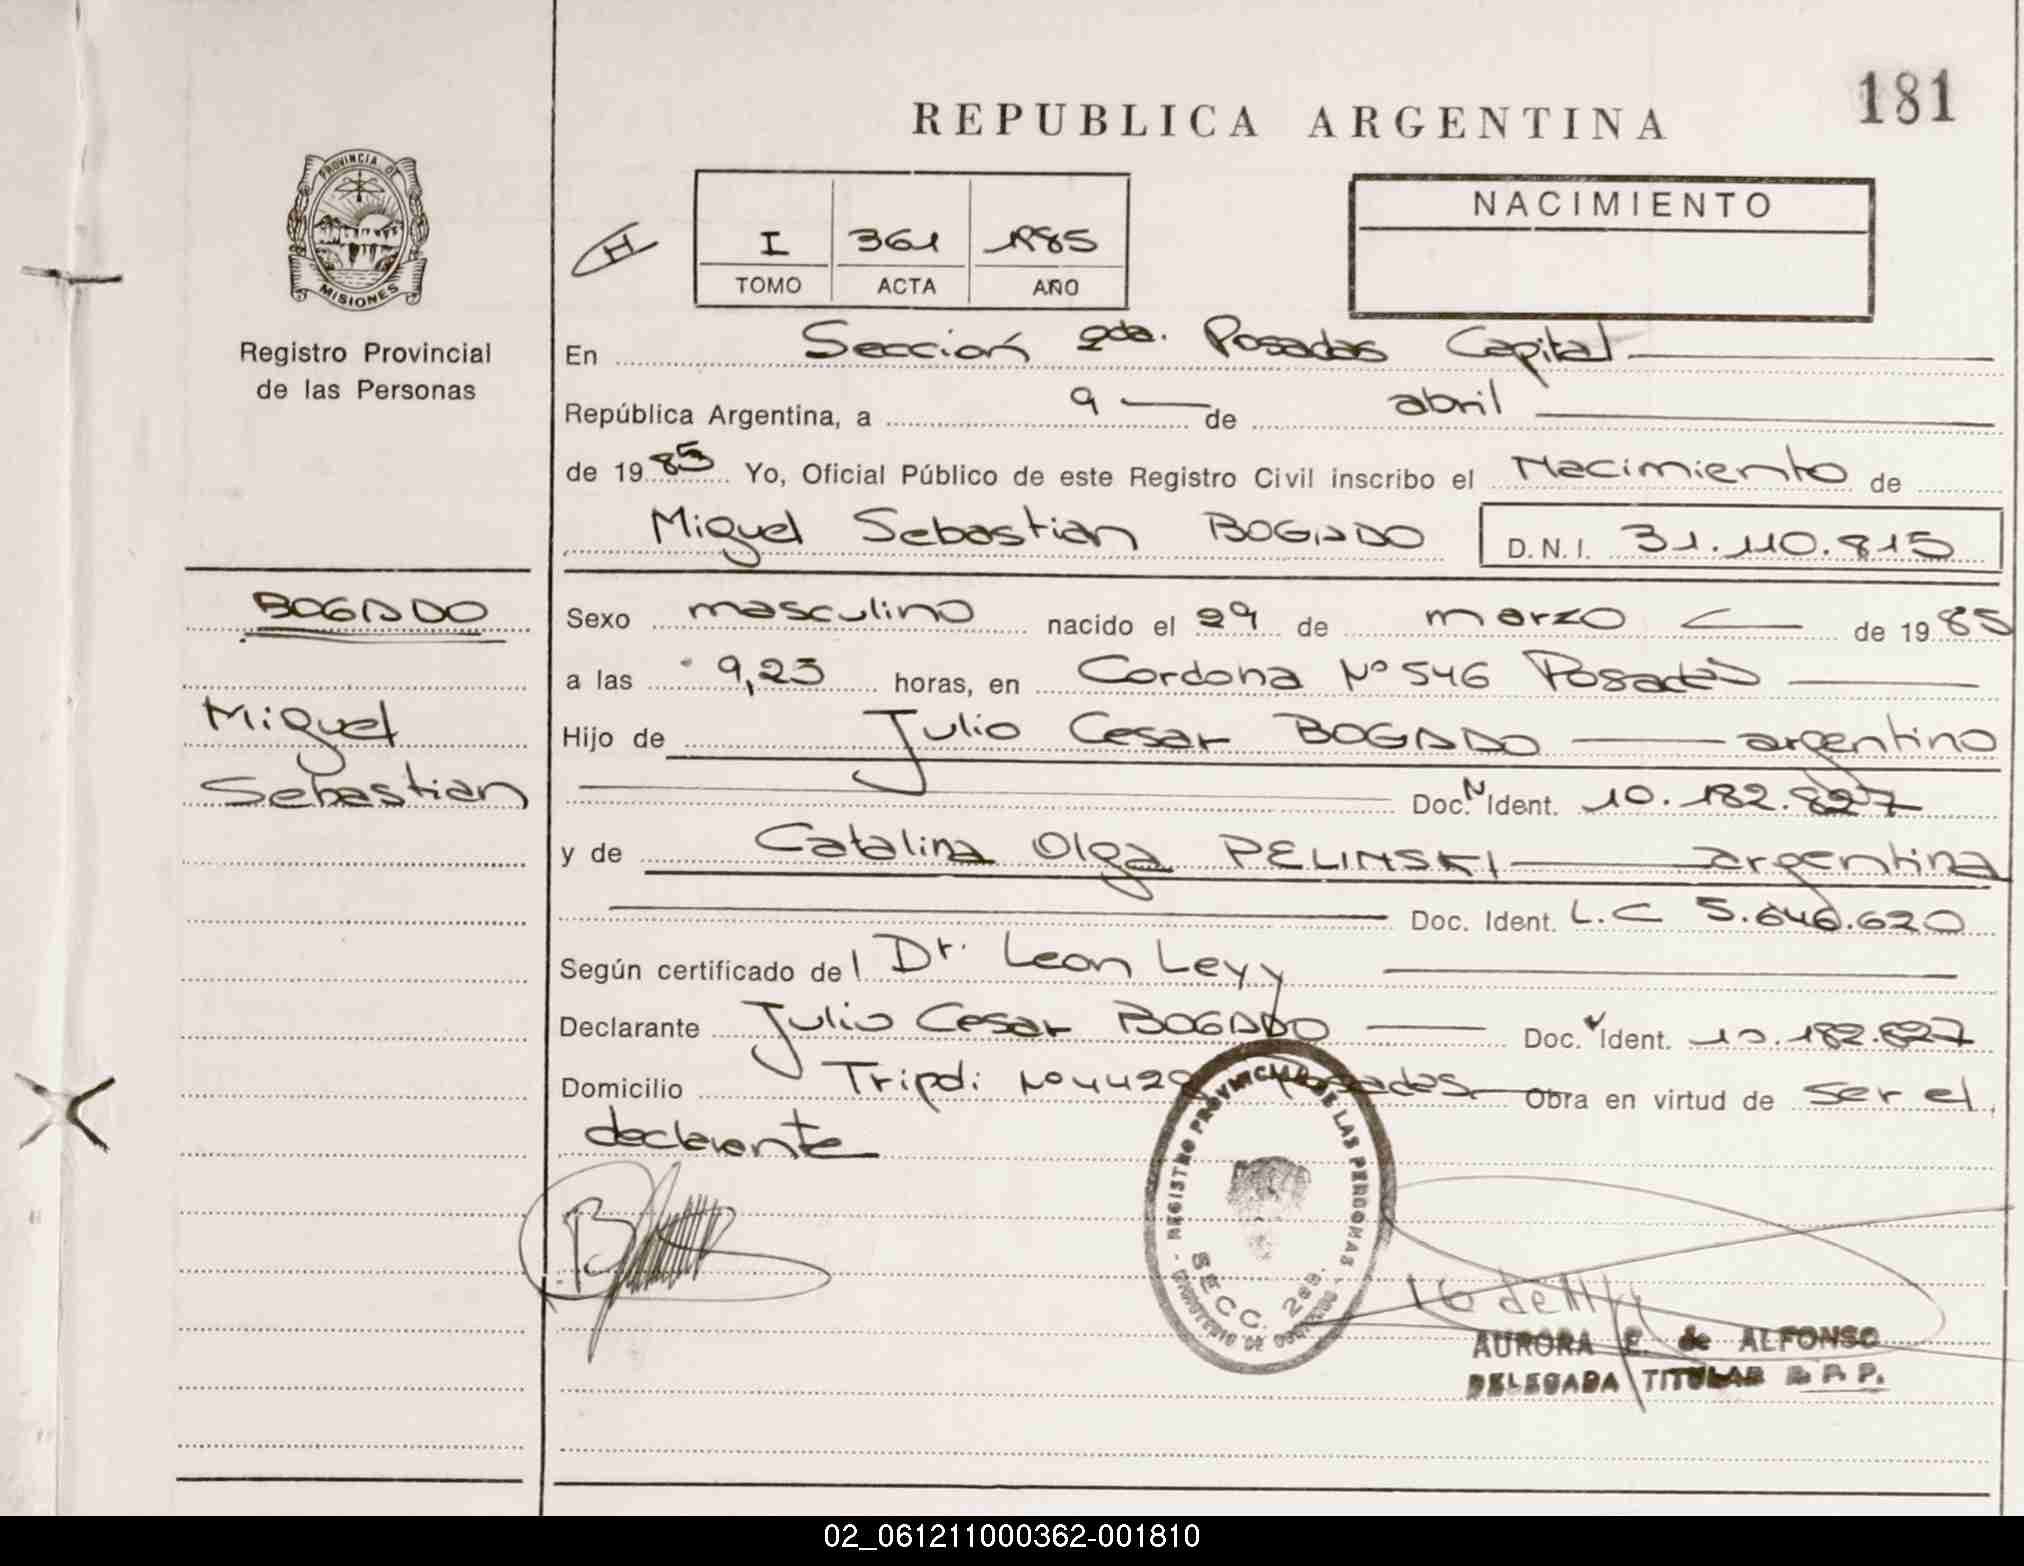 181
REPUBLICA ARGENTINA
PROVINCIA DE
MISIONES
Registro Provincial
de las Personas
H
I 361 1985
TOMO ACTA AÑO
NACIMIENTO
En Sección 2da. Posadas Capital
República Argentina, a 9 de abril
de 1985 Yo, Oficial Público de este Registro Civil inscribo el Nacimiento de
Miguel Sebastian BOGADO D.N.I. 31.110.815
BOGADO
Miguel
Sebastian
Sexo masculino nacido el 29 de marzo de 1985
a las 9,23 horas, en Cordona Nº 546 Posadas
Hijo de Julio Cesar BOGADO argentino
Doc. N Ident. 10.182.827
y de Catalina Olga PELINSKI argentina
Doc. Ident. L.C 5.646.620
Según certificado del Dr. Leon Levy
Declarante Julio Cesar BOGADO Doc. Ident. 10.182.827
Domicilio Nº 4429 Posadas Obra en virtud de ser el
declarante
REGISTRO PROVINCIAL DE LAS PERSONAS
SECC. 2da.
AURORA E. de ALFONSO
DELEGADA TITULAR R.P.P.
02_061211000362-001810